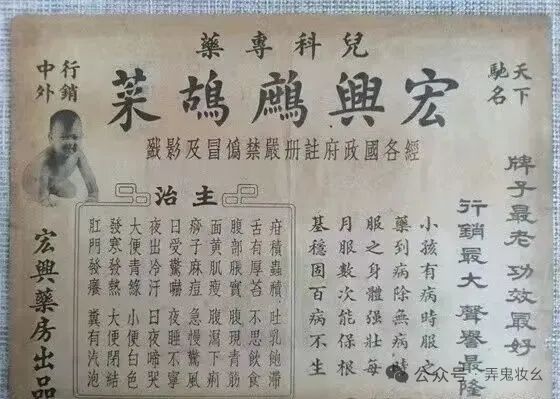 兒科專藥
天下馳名
宏興鷓鴣菜
行銷中外
經各國政府註册嚴禁偽冒及影戤
牌子最老 功效最好
行銷最大 聲譽最隆
小孩有病時服之
藥到病除無病時
服之身體强壯每
月服數次能保根
基穩固百病不生
主治
疳積蟲積 吐乳飽滯
舌有厚苔 不思飲食
腹部脹實 腹現青筋
面黄肌瘦 腹瀉下痢
痧子麻痘 急慢驚風
日愛驚嚇 夜睡不寧
夜出冷汗 日夜啼哭
大便青綠 小便白色
發寒發熱 大便閉結
肛門發癢 糞有汽泡
宏興藥房出品
公众号 · 弄鬼妆幺